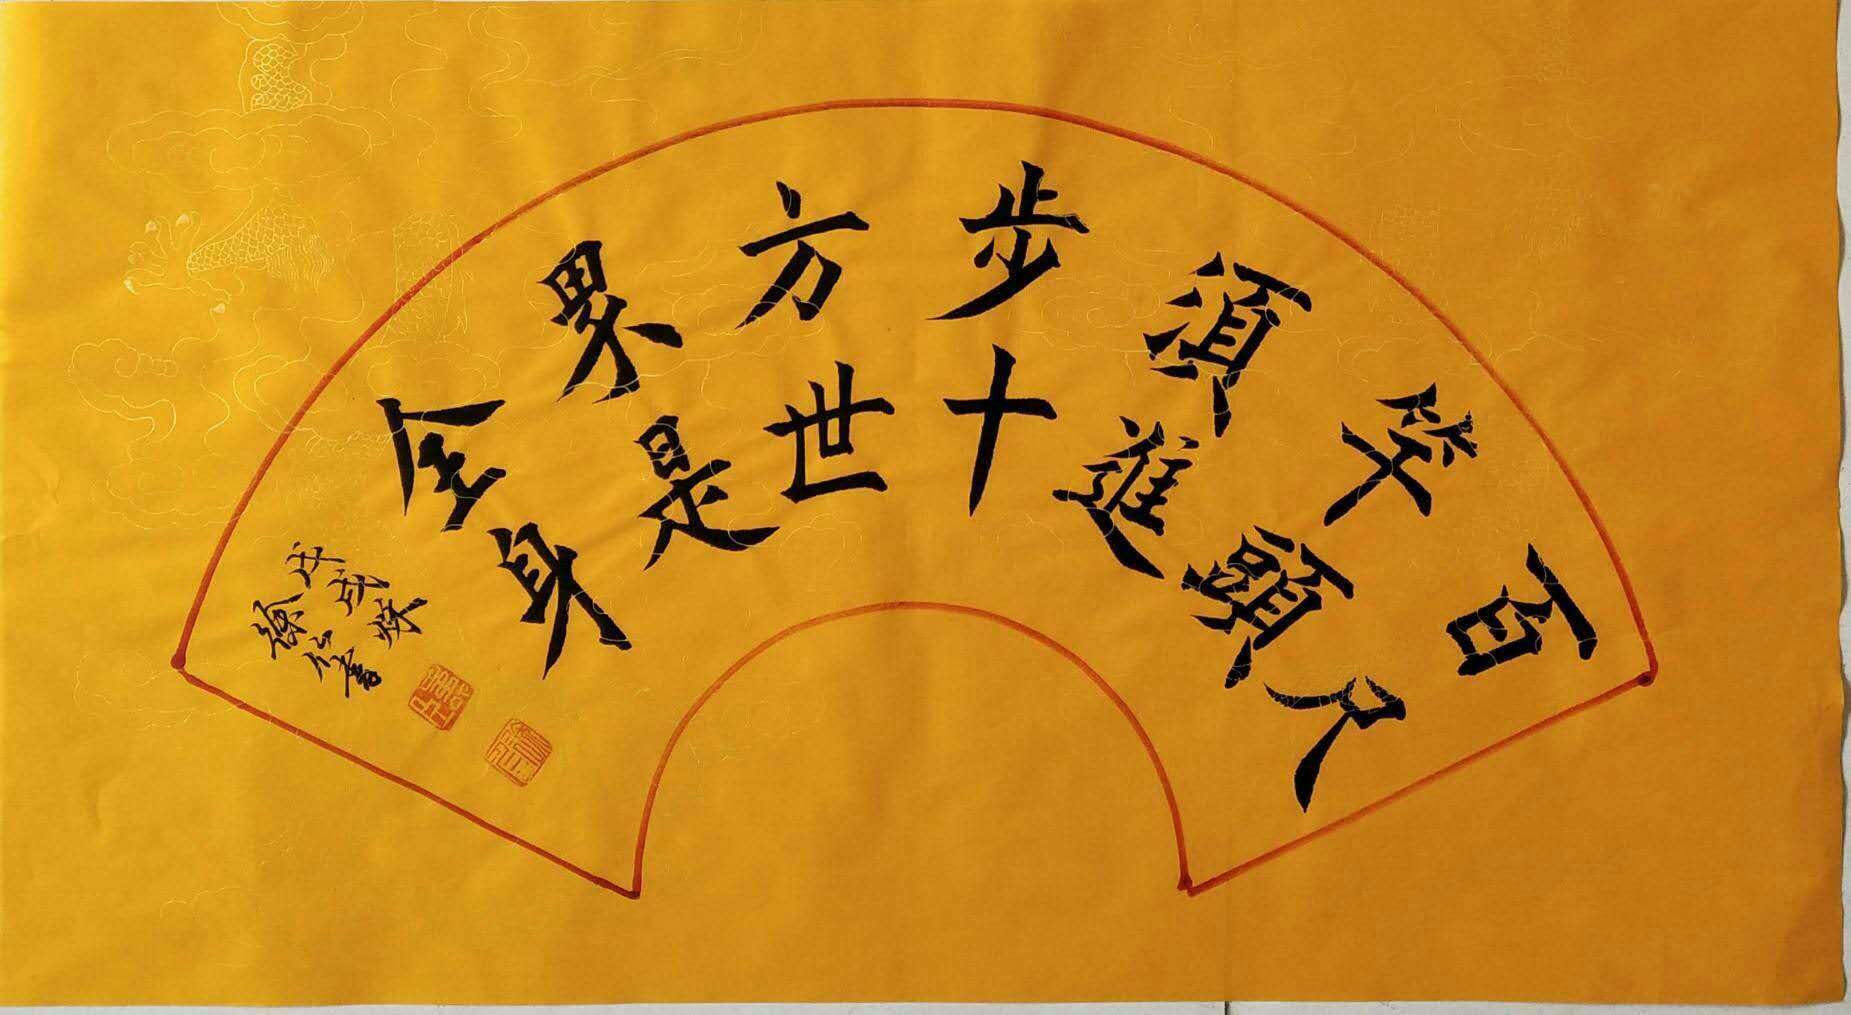 百尺
竿頭
須進
步十
方世
界是
全身
戊戌秋
徐書